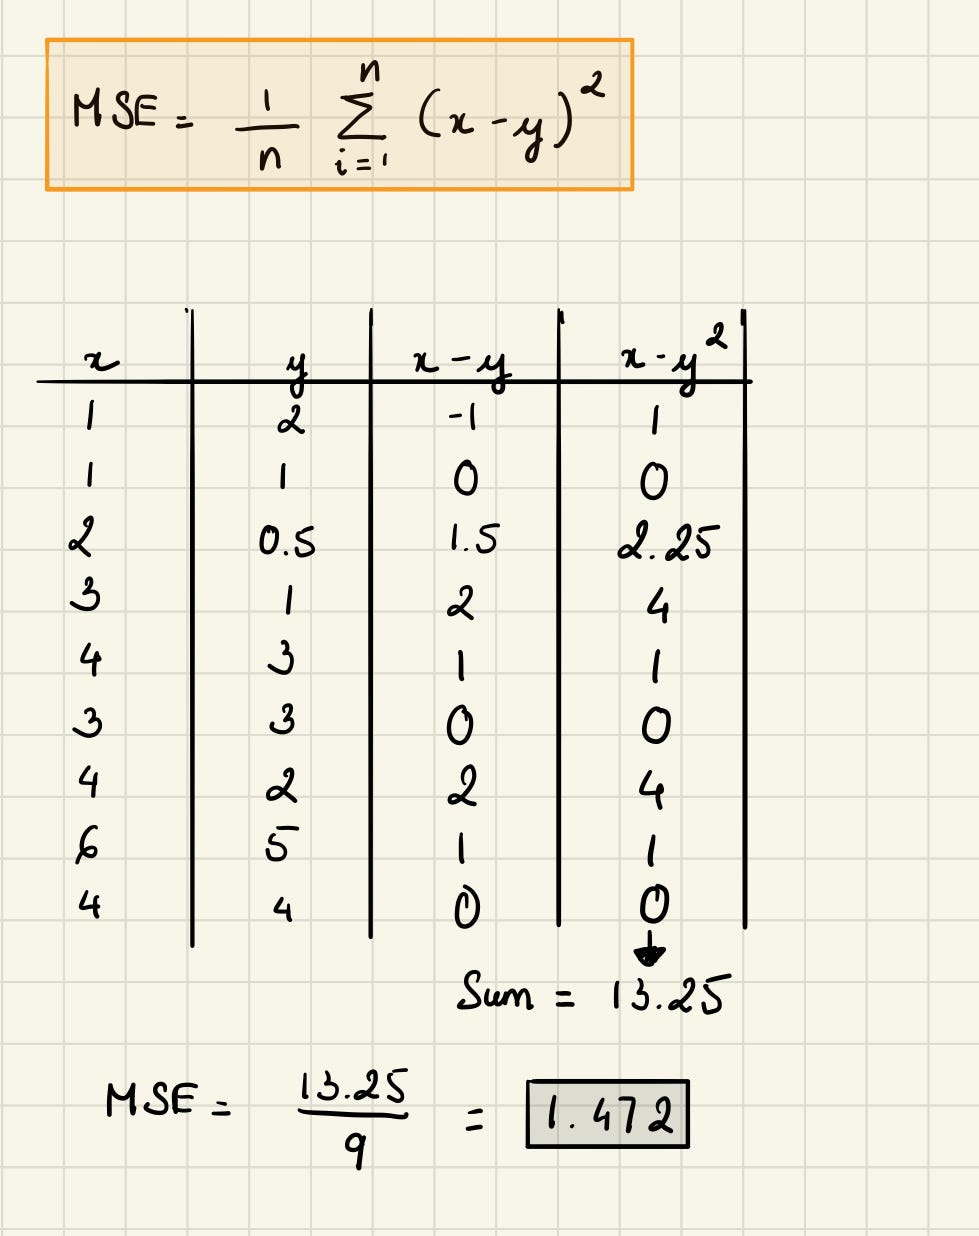 MSE = 1/n n∑i=1 (x - y)²
x y x - y x - y²
1 2 -1 1
1 1 0 0
2 0.5 1.5 2.25
3 1 2 4
4 3 1 1
3 3 0 0
4 2 2 4
6 5 1 1
4 4 0 0
Sum = 13.25
MSE = 13.25/9 = 1.472